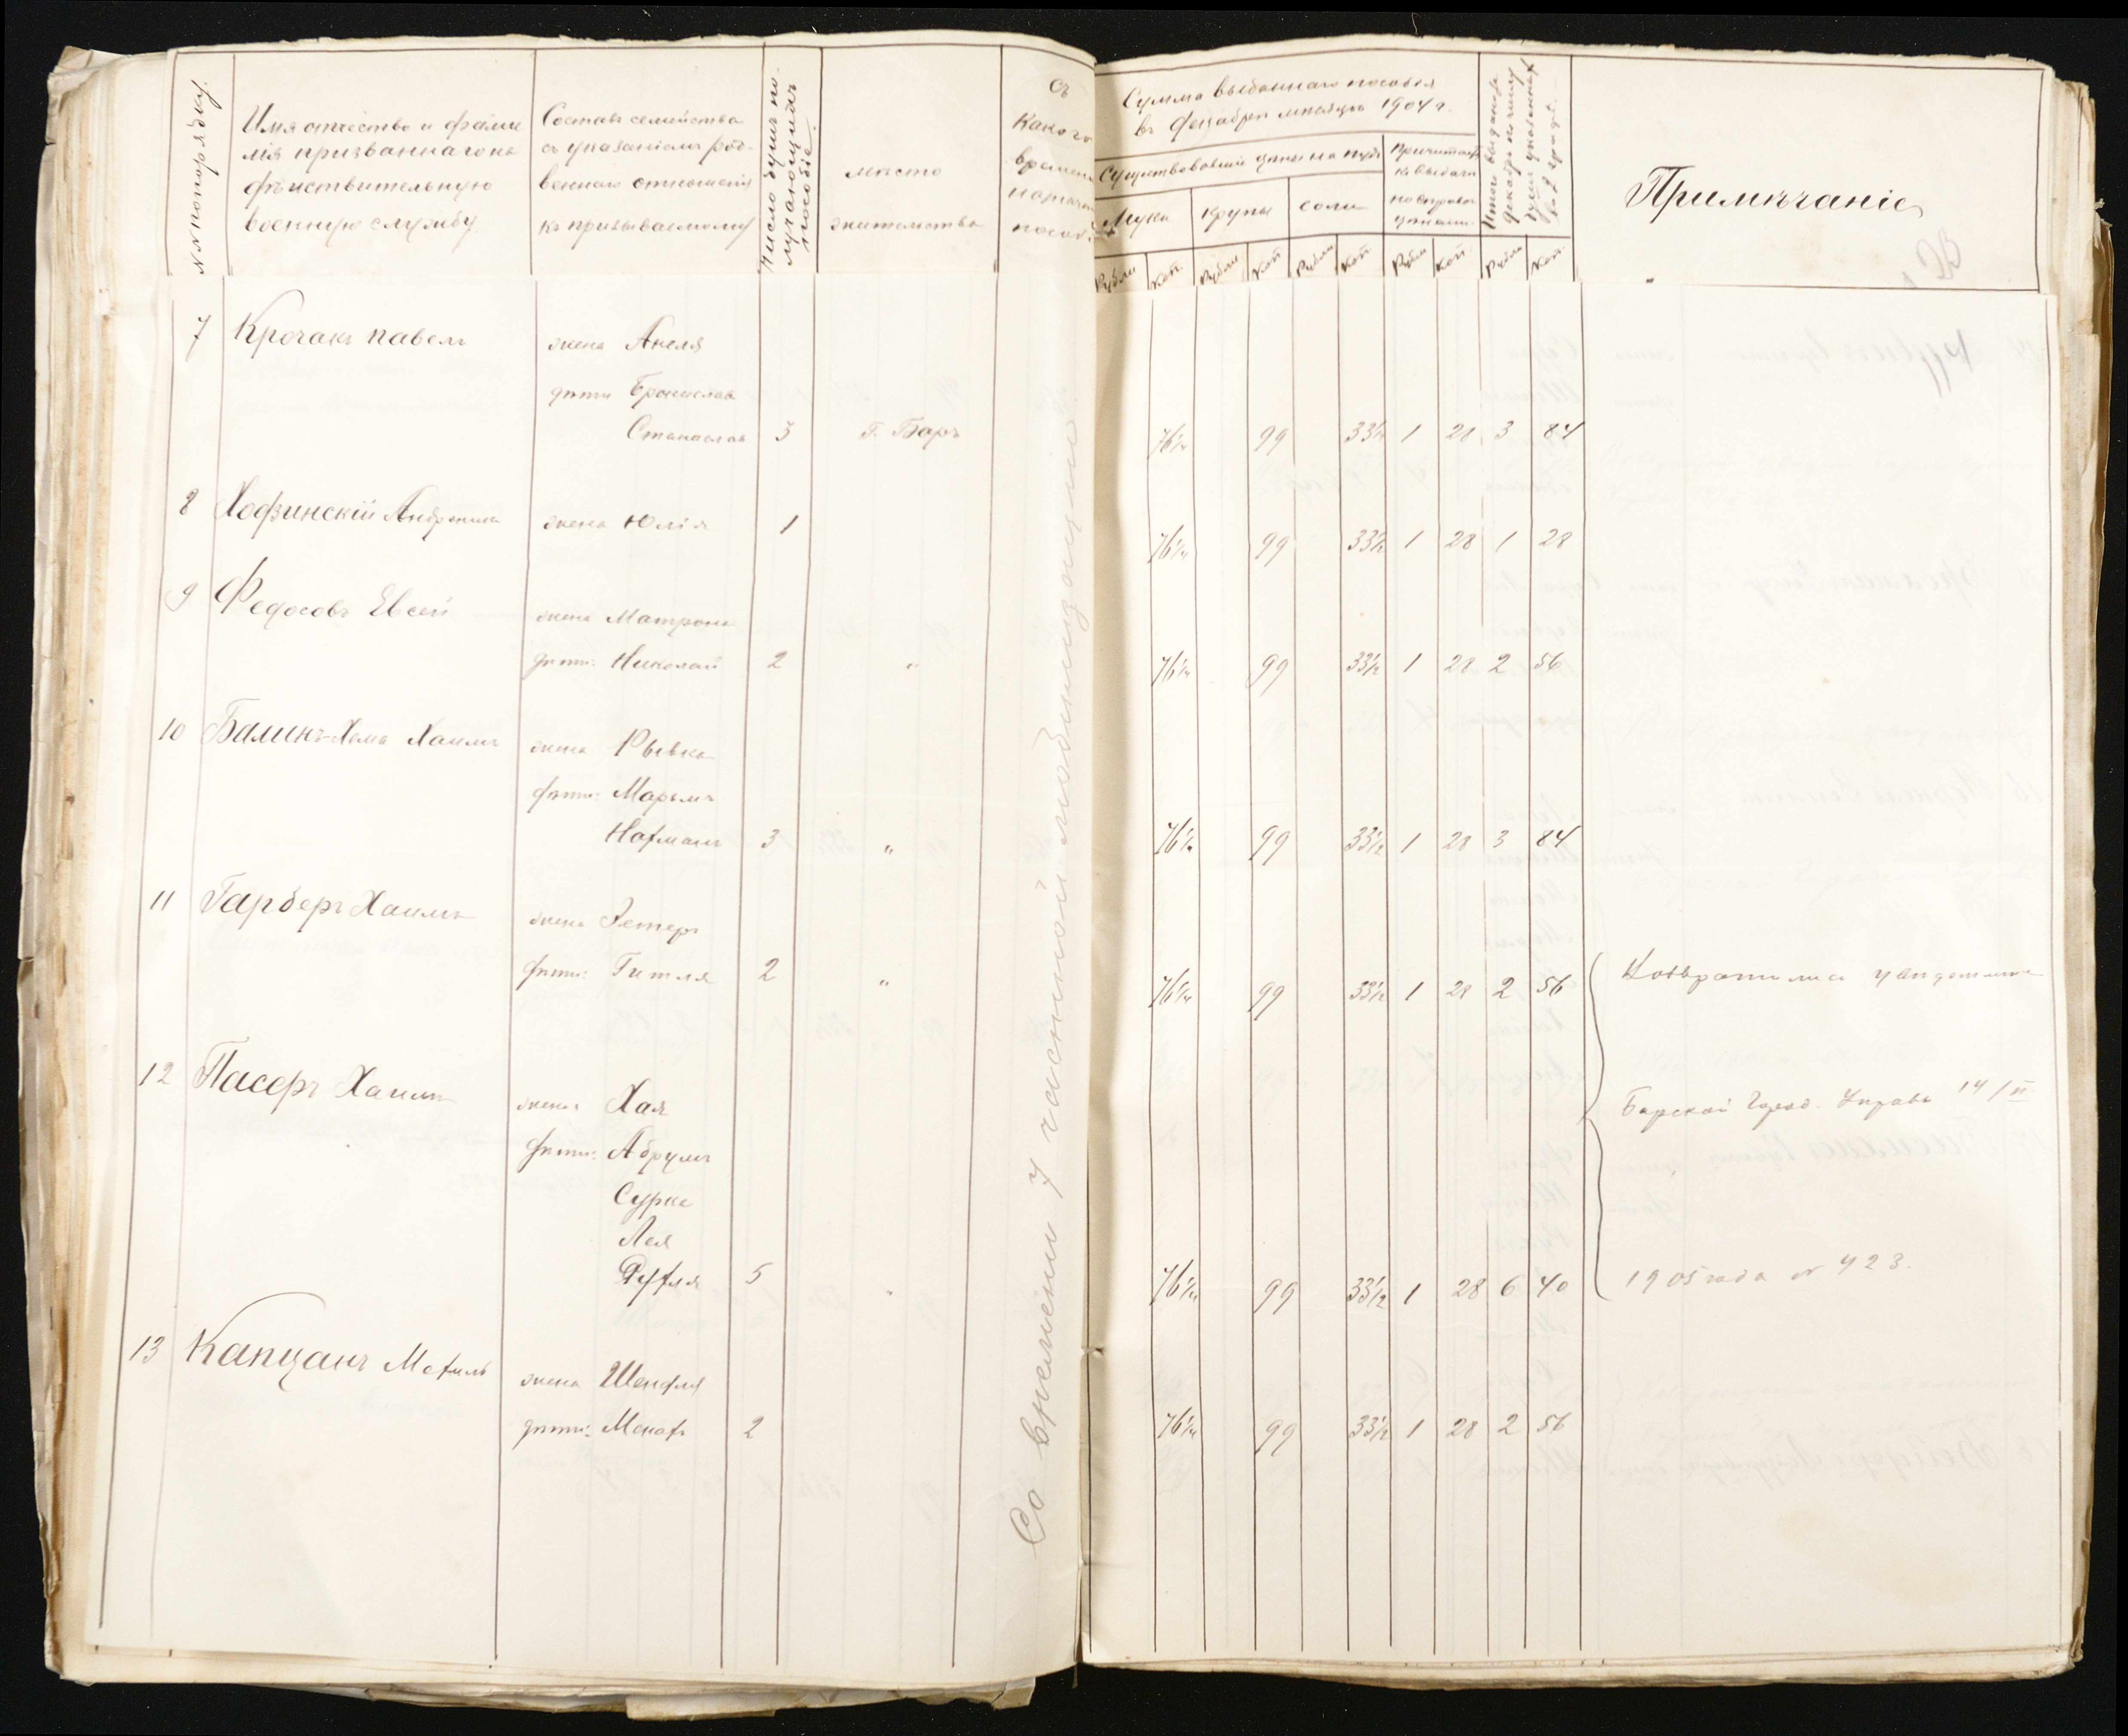 Имя отчество и фами
лія призваннаго на
дѣйствительную
военную службу
Составъ семейства
съ указаніемъ род-
веннаго отношенія
къ призываемому
Число душъ по-
лучающихъ
пособіе
мѣсто
жительства
съ
Какого
времени
пособ
Сумма выданнаго пособія
въ Декабрѣ мѣсяцѣ 1904 г.
Существовавшія цѣны на пудъ
Мука
крупы
соли
Причитает
къ выдачи
по справоч
цѣнамъ
Рубли Коп. Рубли Коп Рубли Коп Рубли Коп Рубли Коп.
Примѣчаніе
7 Крочакъ Павелъ жена Анеля
дѣти Брониславъ
Станиславъ 3 Г. Баръ 76¼ 99 33½ 1 28 3 84
8 жена Юлія 1 76¼ 99 33½ 1 28 1 28
9 Федосовъ Евсей жена Матрона
дѣти: Николай 2 " 76¼ 99 33½ 1 28 2 56
10 Балинъ Хаимъ жена Рывка
дѣти: Марьимъ
Нахманъ 3 " 76¼ 99 33½ 1 28 3 84
11 Гарберъ Хаимъ жена Эстеръ
дѣти: Гитля 2 " 76¼ 99 33½ 1 28 2 56
12 Пасеръ Хаимъ жена Хая
дѣти: Абрумъ
Сурка
Лея
Рухля 5 " 76¼ 99 33½ 1 28 6 40
13 Капцанъ жена Шендля
дѣти: 2 76¼ 99 33½ 1 28 2 56
Со времени 7 частичной мобилизаціи
Барской Город. Управы 14/II
1905 года № 423.